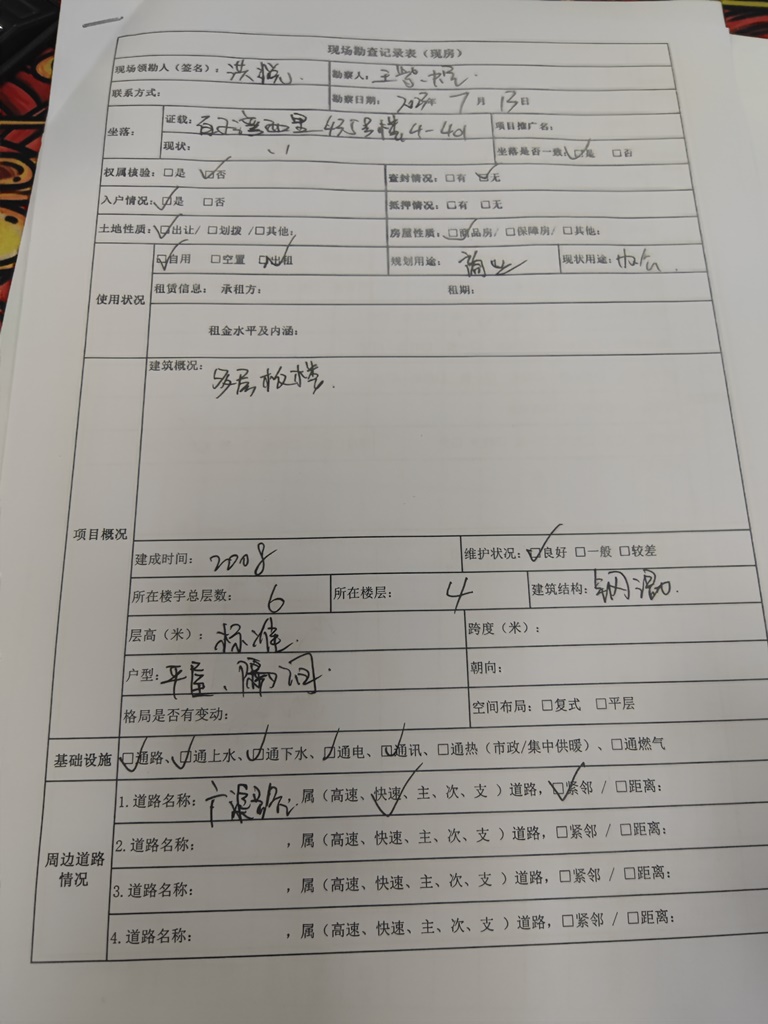 现场勘查记录表（现房）
现场领勘人（签名）： 洪 勘察人： 王
联系方式： 勘察日期：2023年 7 月 13 日
坐落： 证载：百子湾西里 435号楼 4-401 项目推广名：
现状： 坐落是否一致：☑是 □否
权属核验：□是 ☑否 查封情况：□有 ☑无
入户情况：☑是 □否 抵押情况：□有 □无
土地性质：☑出让/ □划拨 /□其他： 房屋性质：☑商品房/ □保障房/ □其他：
使用状况 ☑自用 □空置 ☑出租 规划用途：商业 现状用途：办公
租赁信息： 承租方： 租期：
租金水平及内涵：
项目概况 建筑概况：多层板楼
建成时间：2008 维护状况：☑良好 □一般 □较差
所在楼宇总层数：6 所在楼层：4 建筑结构：钢混
层高（米）：标准 跨度（米）：
户型：平层、隔间 朝向：
格局是否有变动： 空间布局：□复式 □平层
基础设施 ☑通路、☑通上水、☑通下水、☑通电、☑通讯、□通热（市政/集中供暖）、□通燃气
周边道路情况 1.道路名称：广渠路，属（高速、快速✓、主、次、支 ）道路，☑紧邻 / □距离：
2.道路名称： ，属（高速、快速、主、次、支 ）道路，□紧邻 / □距离：
3.道路名称： ，属（高速、快速、主、次、支 ）道路，□紧邻 / □距离：
4.道路名称： ，属（高速、快速、主、次、支 ）道路，□紧邻 / □距离：